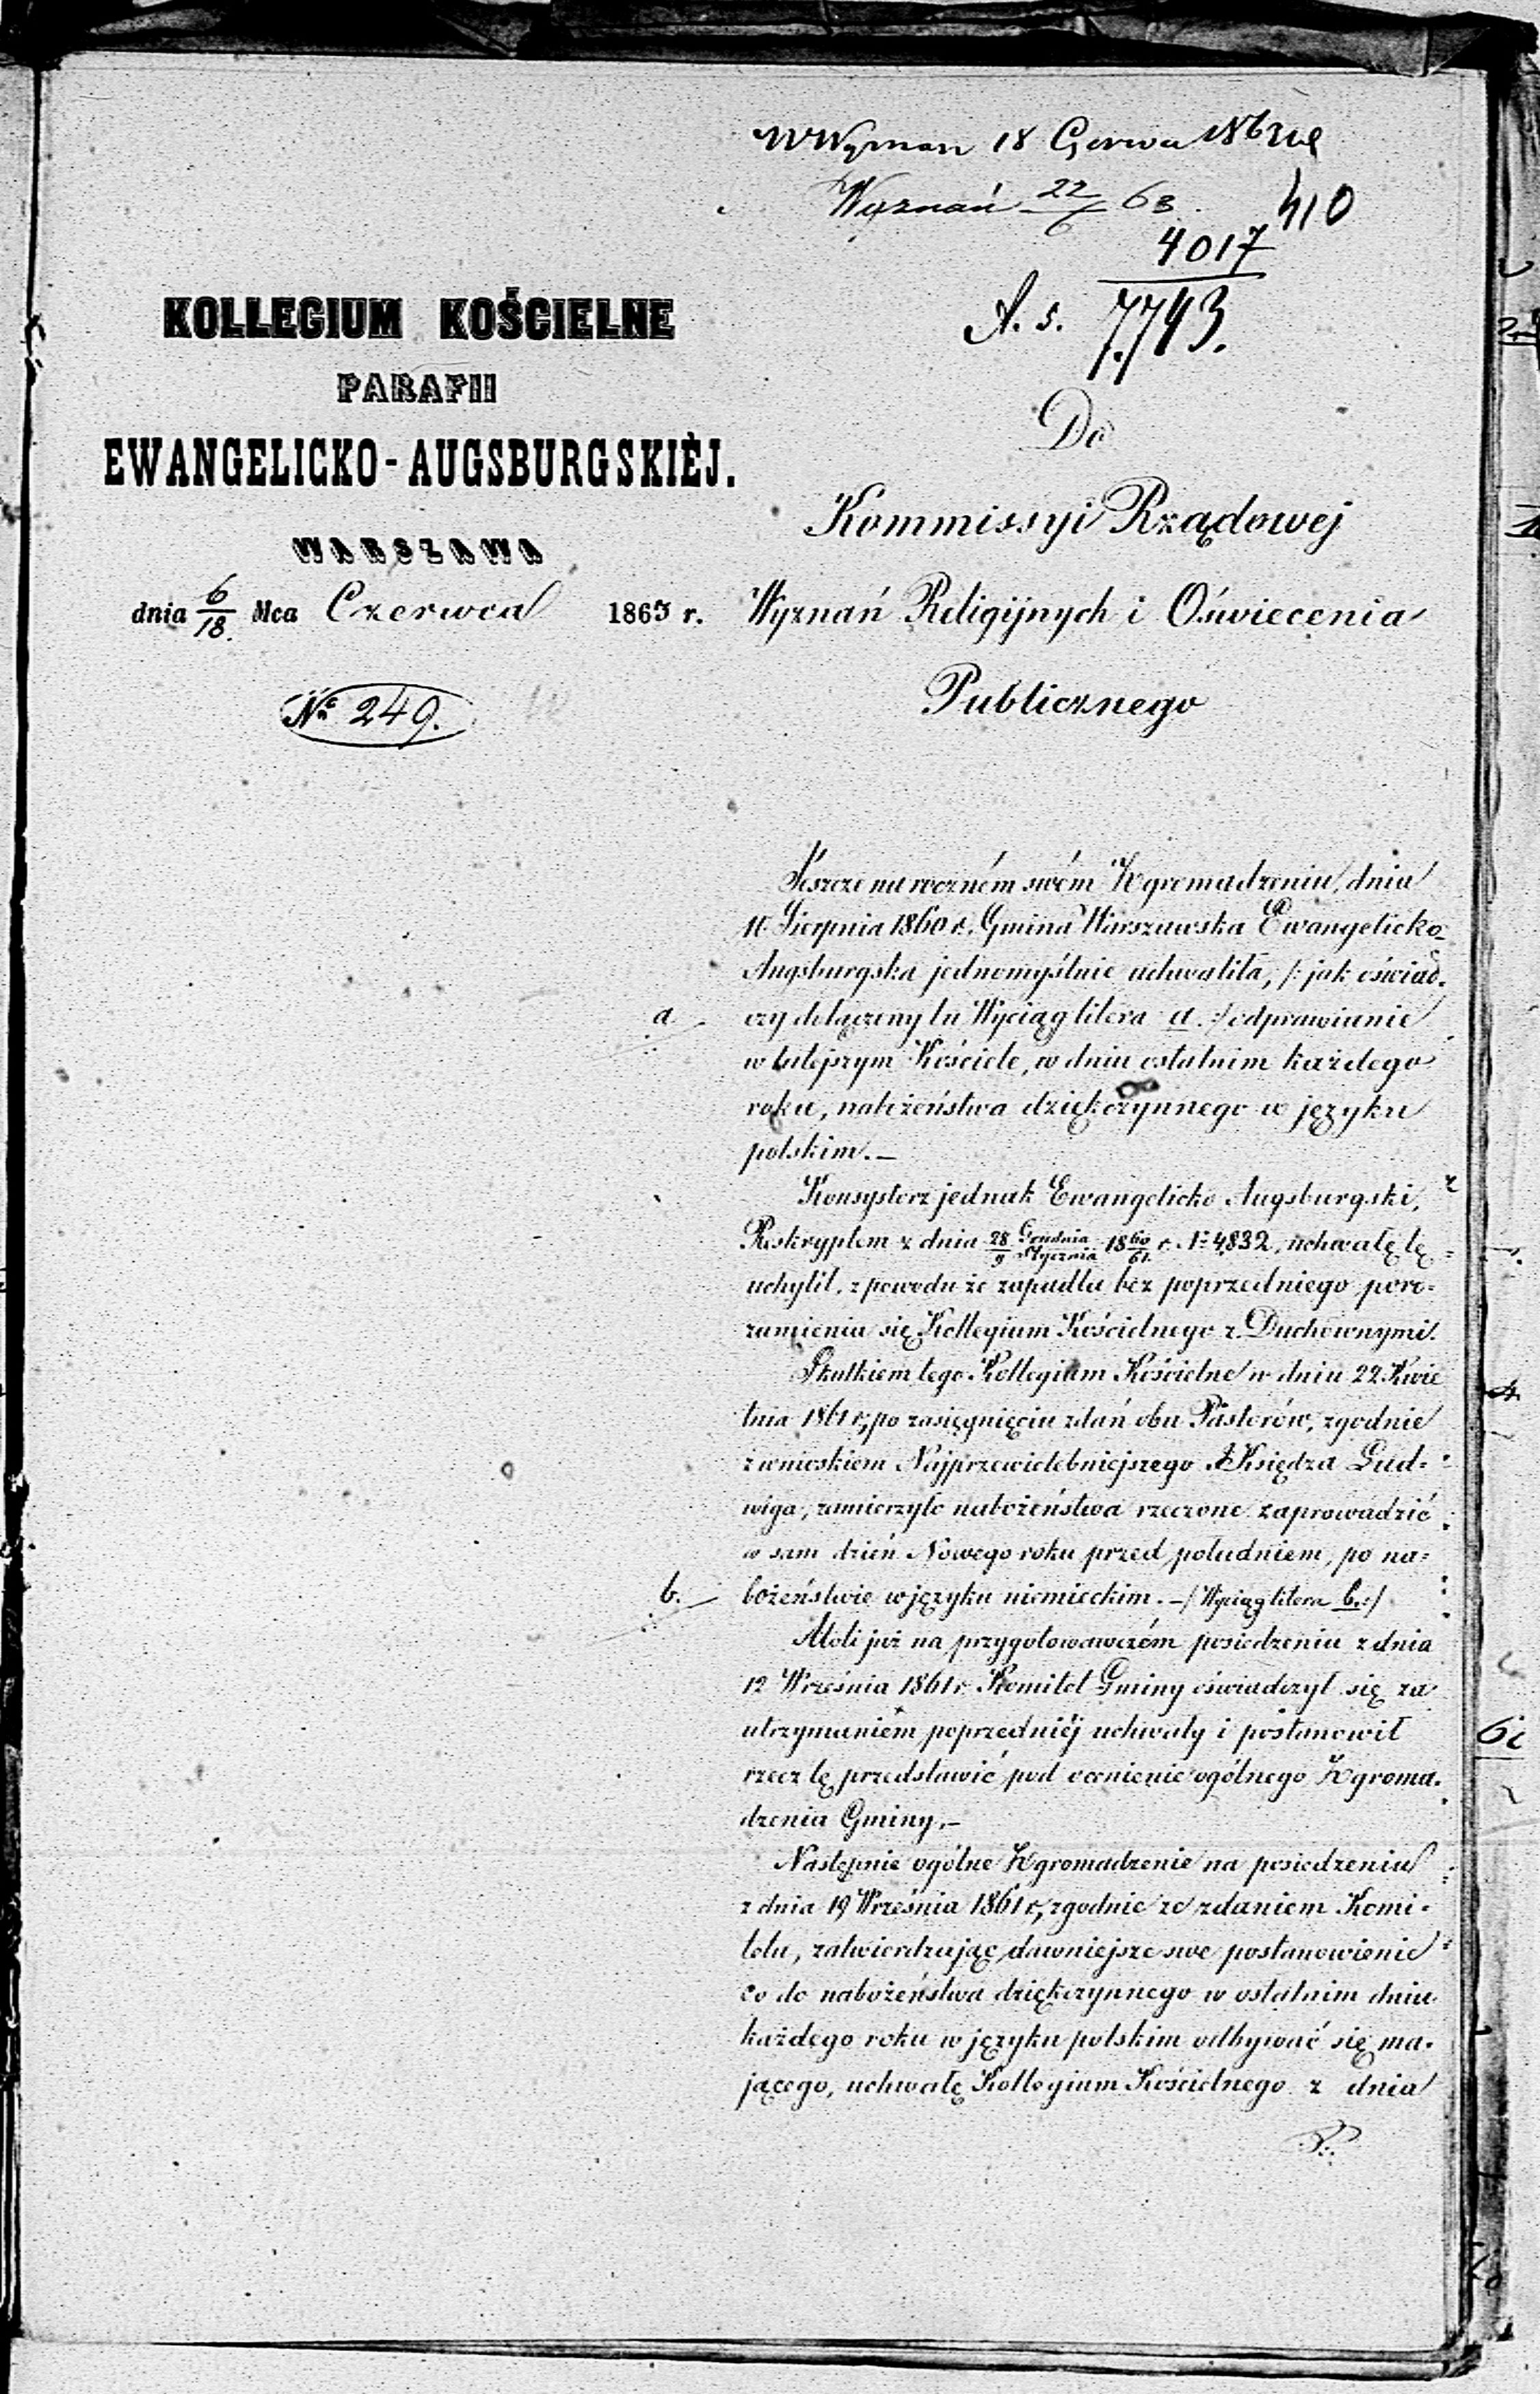 18 Czerwca 1863 r.
Wyznań 22/6 63.
410
4017
A. s. 7743.
KOLLEGIUM KOŚCIELNE
PARAFII
EWANGELICKO-AUGSBURGSKIÉJ.
WARSZAWA
dnia 6/18. Mca Czerwca 1863 r.
No 249.
Do
Kommissyi Rządowej
Wyznań Religijnych i Oświecenia
Publicznego
Jeszcze na roczném swém Zgromadzeniu, dnia
Sierpnia 1860 r. Gmina Warszawska Ewangelicko-
Augsburgska jednomyślnie uchwaliła, /: jak oświad-
a czy dołączony tu Wyciąg litera a. :/ odprawianie
w tutejszym Kościele, w dniu ostatnim każdego
roku, nabożeństwa dziękczynnego w języku
polskim. —
Konsystorz jednak Ewangelicko Augsburgski,
Reskryptem z dnia 28 Grudnia/9 Stycznia 1860/61. r. No 4832, uchwałę tę
uchylił, z powodu że zapadła bez poprzedniego poro-
zumienia się Kollegium Kościelnego z Duchownymi.
Skutkiem tego Kollegium Kościelne w dniu 22 Kwie
tnia 1861 r., po zasięgnięciu zdań obu Pastorów, zgodnie
z wnioskiem Najprzewielebniejszego Księdza Lud-
wiga, zamierzyło nabożeństwa rzeczone zaprowadzić
w sam dzień Nowego roku przed południem, po na-
b. bożeństwie w języku niemieckim. — /: Wyciąg litera b. :/
Atoli już na przygotowawczém posiedzeniu z dnia
12 Września 1861 r. Komitet Gminy oświadczył się za
utrzymaniem poprzedniéj uchwały i postanowił
rzecz tę przedstawić pod ocenienie ogólnego Zgroma-
dzenia Gminy. —
Następnie ogólne Zgromadzenie na posiedzeniu
z dnia 19 Września 1861 r., zgodnie ze zdaniem Komi-
tetu, zatwierdzając dawniejsze swe postanowienie
co do nabożeństwa dziękczynnego w ostatnim dniu
każdego roku w języku polskim odbywać się ma-
jącego, uchwałę Kollegium Kościelnego z dnia